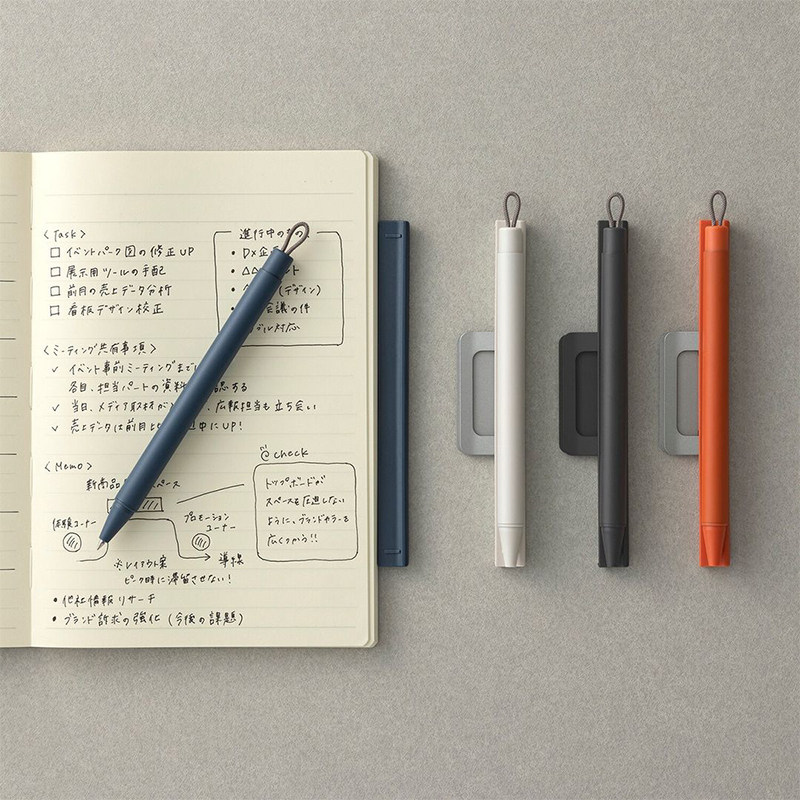 〈Task〉
□ イベントパーク図の修正UP
□ 展示用ツールの手配
□ 前月の売上データ分析
□ 看板デザイン校正
進行中のもの
・DX企
・△△ ト
・ (デザイン)
・ 会議の件
・ ブル対応
〈ミーティング共有事項〉
✓ イベント事前ミーティングまでに
各自、担当パートの資料 認する
✓ 当日、メディア取材が 、広報担当も立ち会い
✓ 売上データは前月 中にUP!
〈Memo〉
新商品 スペース
体験コーナー
プロモーション
コーナー
→ 導線
※レイアウト案
ピーク時に滞留させない!
check
トップボードが
スペースを圧迫しない
ように、ブランドカラーを
広くカラう!!
・他社情報リサーチ
・ブランド訴求の強化 (今後の課題)